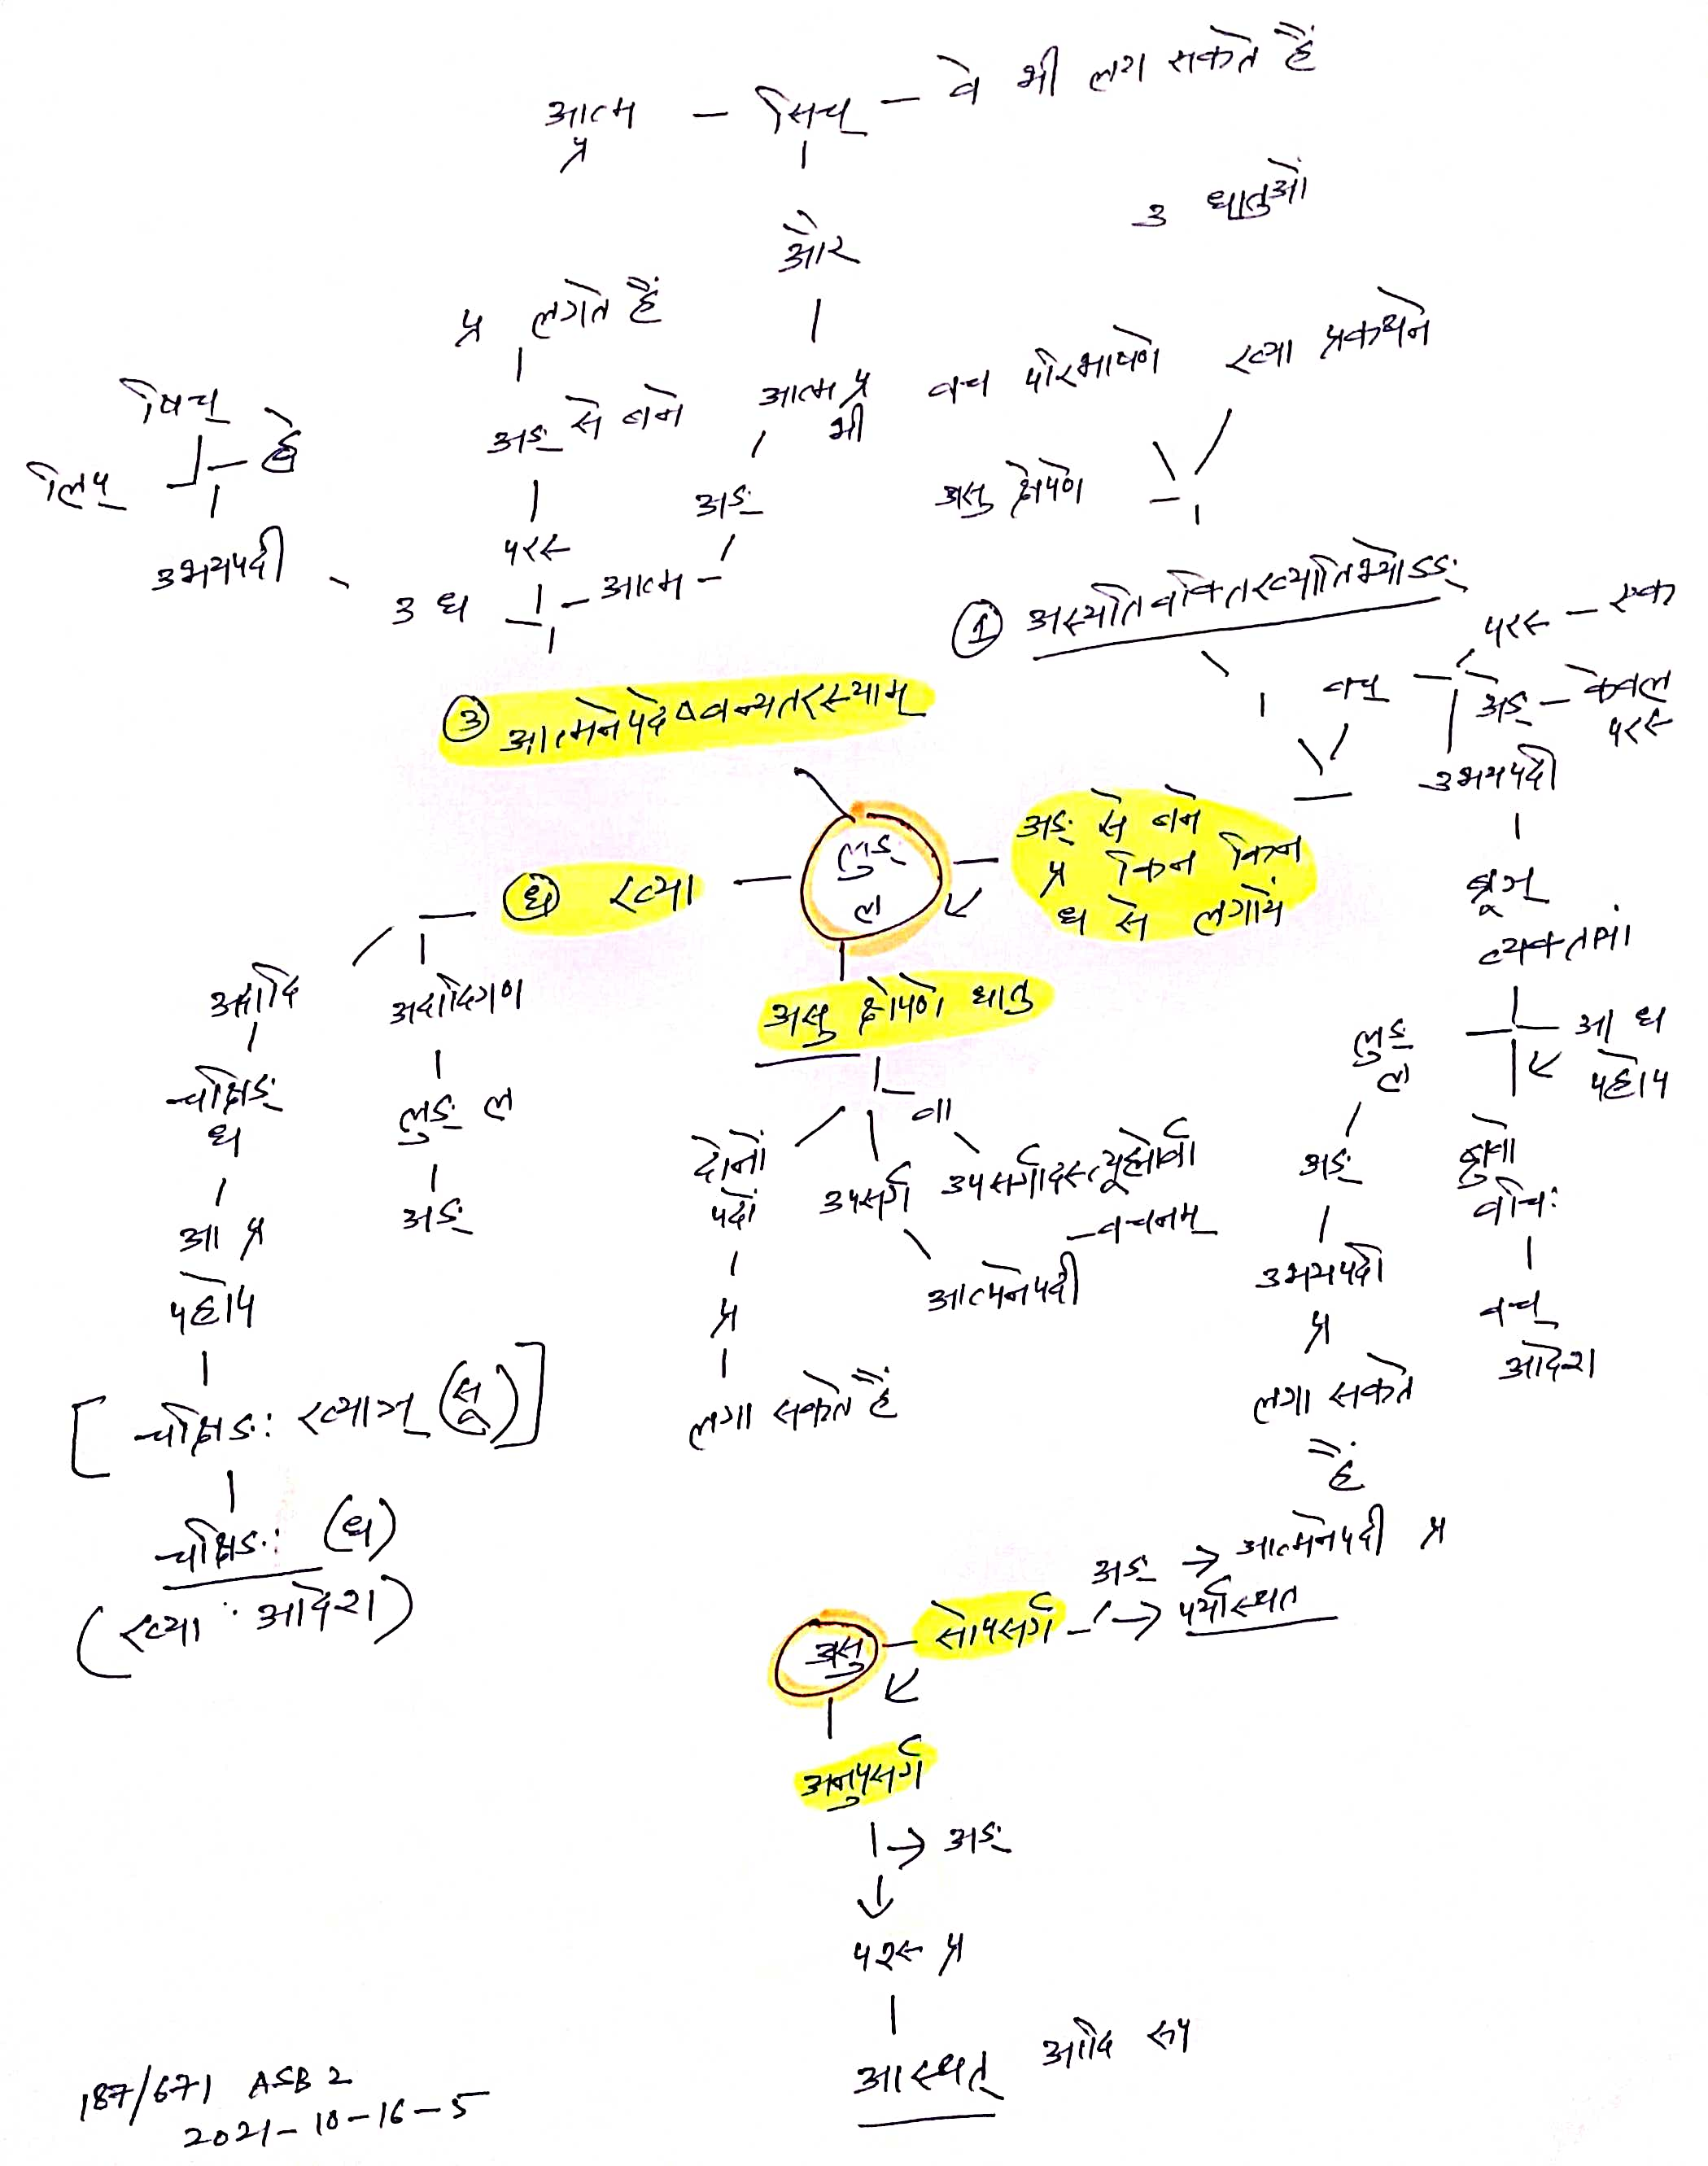 आत्म - सिच् - वे भी लग सकते हैं
प्र
और
3 धातुओं
प्र लगते हैं
अङ् से बने
आत्म प्र
भी
वच परिभाषणे
ख्या प्रकथने
असु क्षेपणे
षिच्
लिप्
ह्वे
उभयपदी
अङ्
परस्
3 ध - आत्म -
① अस्यतिवक्तिख्यातिभ्योऽङ्
③ आत्मनेपदेष्वन्यतरस्याम्
वच्
परस् - एक
अङ् - केवल
परस्
उभयपदी
ब्रूञ्
व्यक्तायां
लुङ्
ल
अङ् से बने
प्र किन किन
ध से लगायें
(ध) ख्या
लुङ्
ल
असु क्षेपणे धातु
अदादि
अदादिगण
चक्षिङ्
ध
लुङ् ल
आ प्र
अङ्
पहोप
[चक्षिङः ख्याञ् (सू)]
चक्षिङः (ध)
(ख्या आदेश)
वा
दोनों
पदों
उपसर्ग
उपसर्गादस्त्यूह्योर्वा
- वचनम्
आत्मनेपदी
प्र
लगा सकते हैं
आ ध
पहोप
अङ्
ब्रुवो
वचिः
उभयपदी
प्र
वच्
आदेश
लगा सकते
हैं
अङ् → आत्मनेपदी प्र
असु - सोपसर्ग - → पर्यास्थत
अनुपसर्ग
→ अङ्
परस् प्र
आस्थत् आदि रूप
187/671 ASB 2
2021-10-16-5